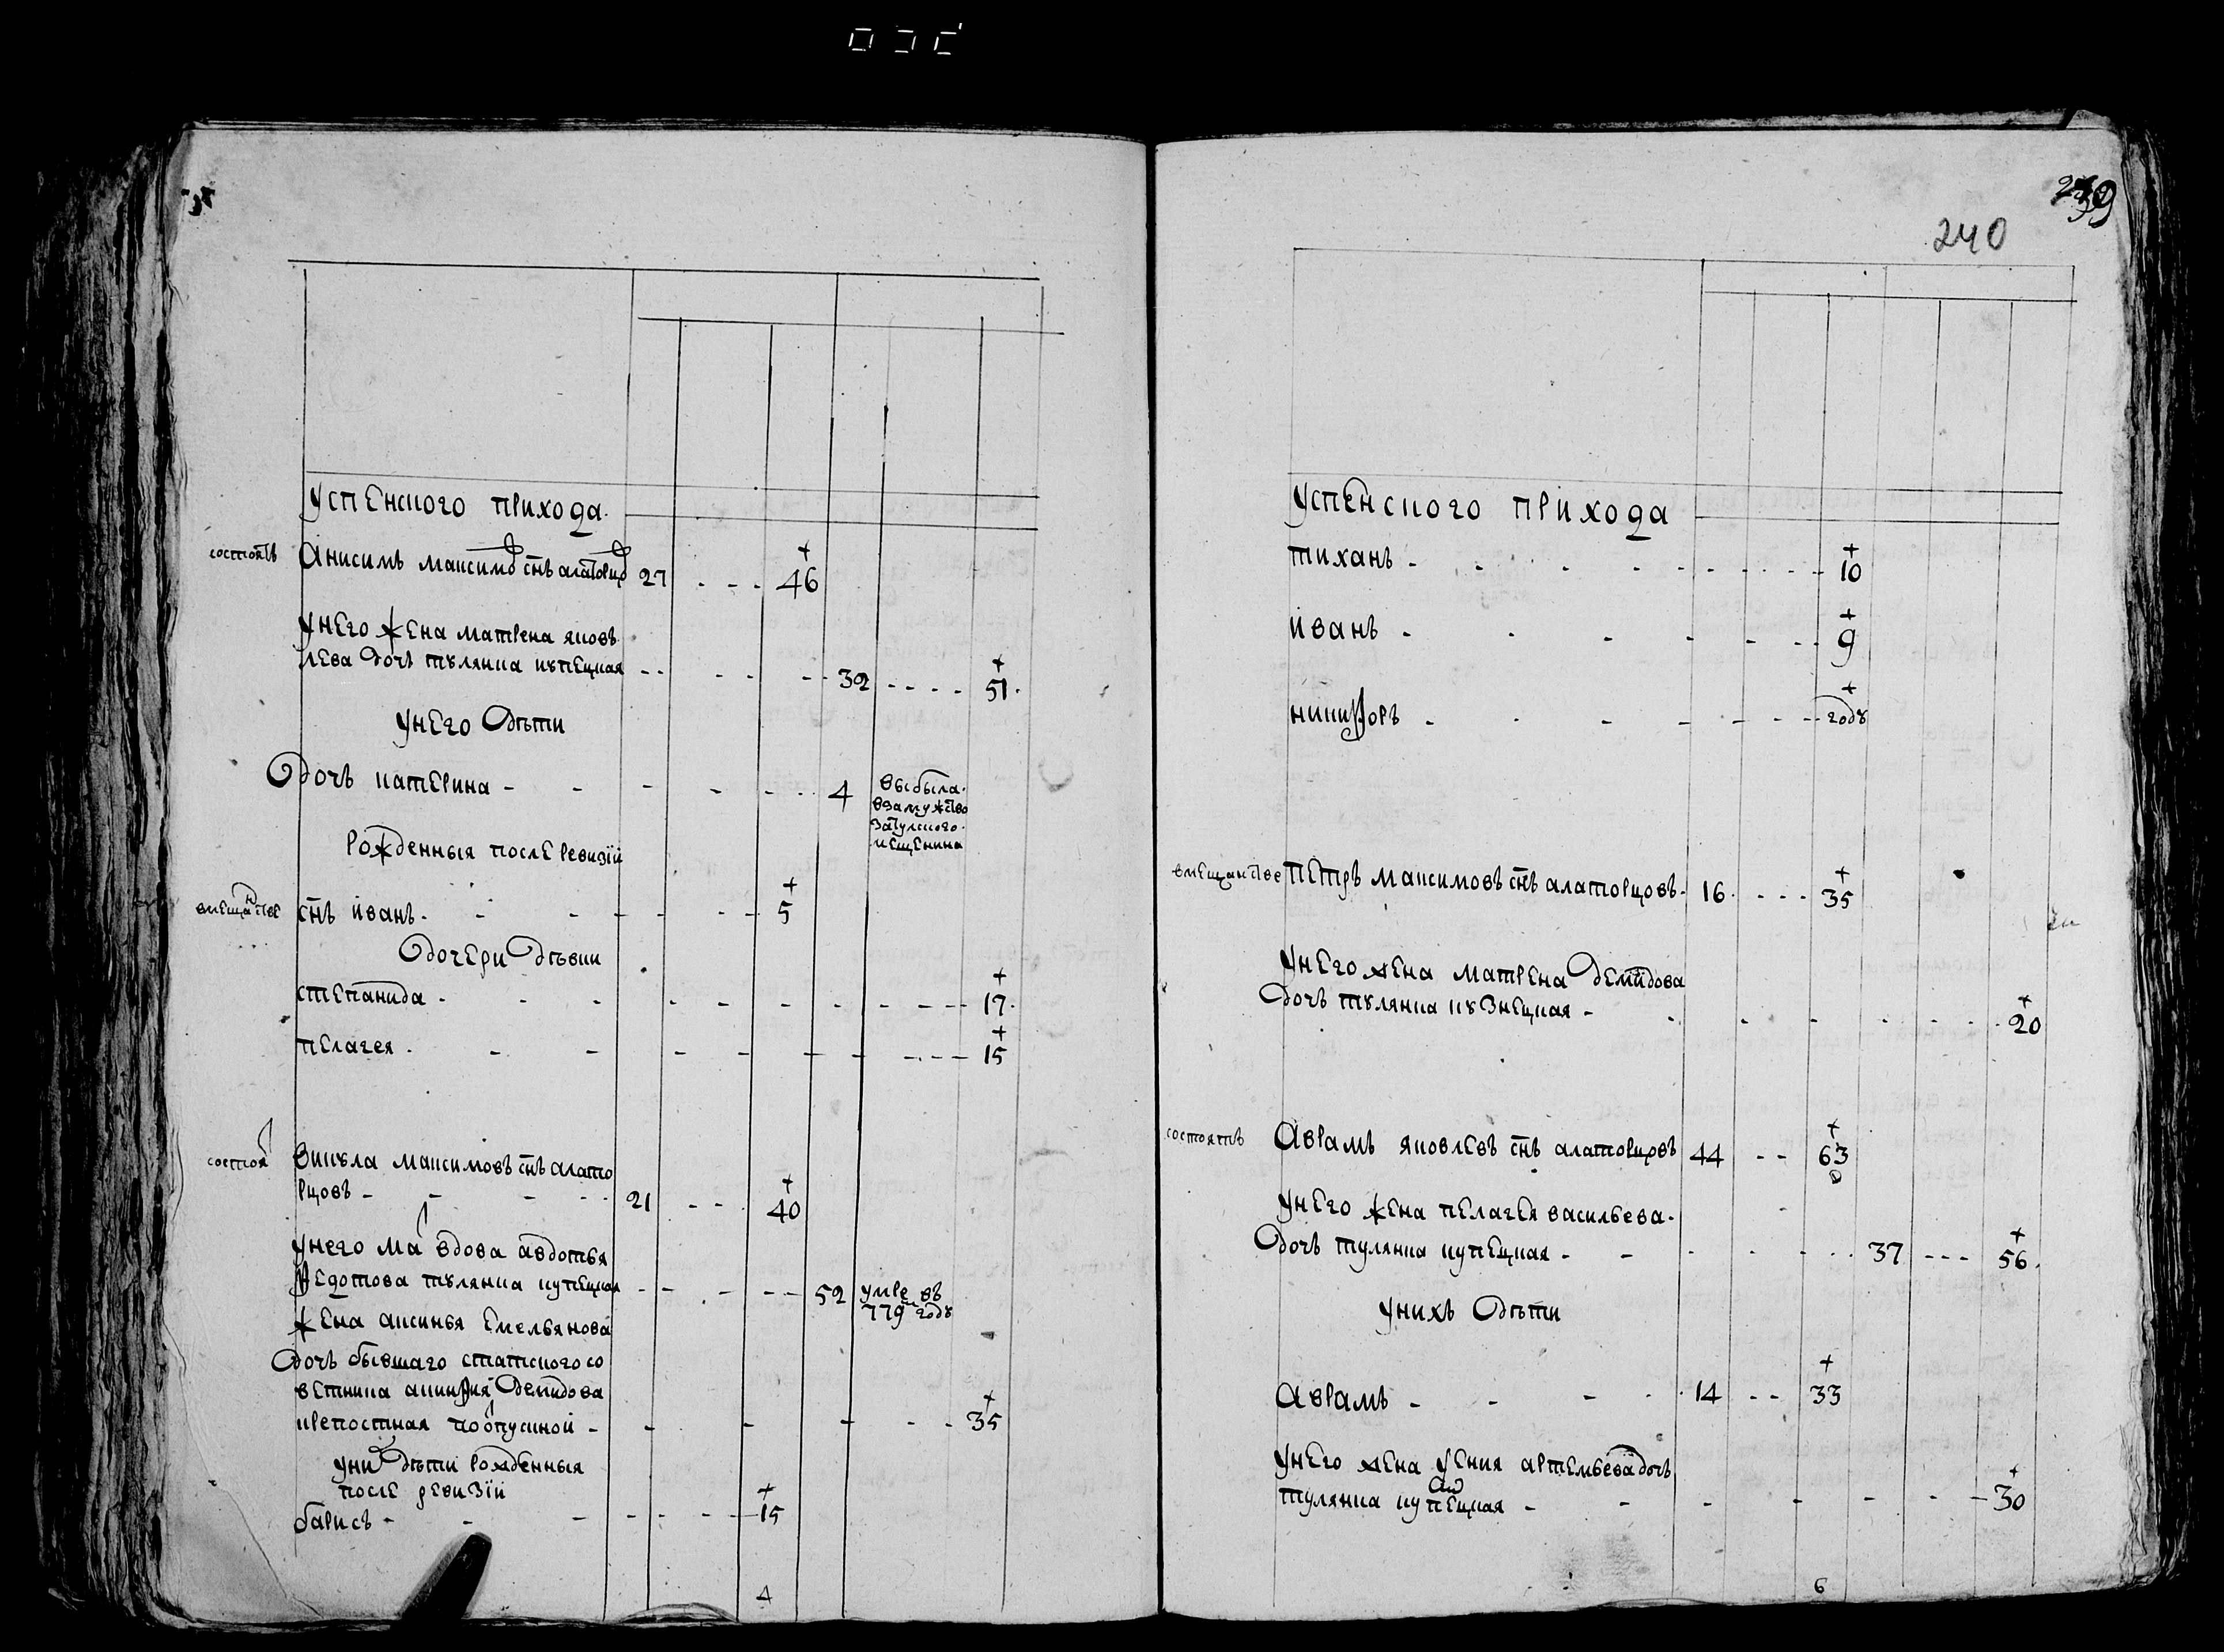 Успенского прихода
состоятъ Анисимъ Максимо снъ алаторцо 27 - - - 46
унего жена матрена яков
лева дочь туляниа купецкая - - - - 32 - - - - 51
унего дѣти
дочь катерина - - - - - 4 выбыла
взамужство
затулского
мещенина
рожденныя после ревизіи
вмещанстве снъ иванъ - - - - - 5
дочери дѣвки
степанида - - - - - - - - 17
пелагея - - - - - - - - 15
состоя викула максимовъ снъ алато
рцовъ - - - - 21 - - - 40
унего ма вдова авдотья
ѳедотова туляниа купецкая - - - - - 52 умре въ
779м году
жена аксинья емельянова
дочь бывшаго статского со
ветника акинѳия демидова
крепостная поопускной - - - - - - 35
уни дѣти рожденныя
после ревизіи
барисъ - - - - - - 15
4
239
240
Успенского прихода
тиханъ - - - - - - - - 10
иванъ - - - - - - - 9
никиѳоръ - - - - - - - году
вмещанстве петръ максимовъ снъ алаторцовъ 16 - - - 35
унего жена матрена демидова
дочь туляниа кузнецкая - - - - - - - 20
состоятъ Аврамъ яковлевъ снъ алаторцовъ 44 - - 63
унего жена пелагея васильева
дочь туляниа купецкая - - - - - 37 - - - 56
унихъ дѣти
Аврамъ - - - - 14 - - 33
унего жена артемьева дочь
туляниа купецкая - - - - - - - 30
6